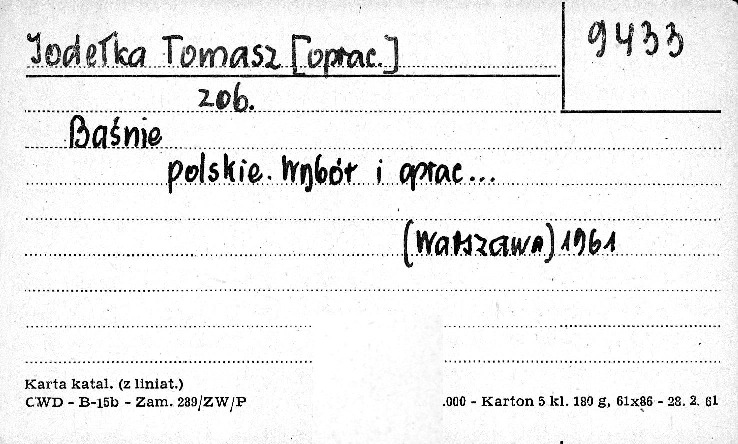 Jodełka Tomasz [oprac.]
9433
zob.
Baśnie
polskie. Wybór i oprac...
(Warszawa) 1961
Karta katal. (z liniat.)
CWD - B-15b - Zam. 289/ZW/P
.000 - Karton 5 kl. 180 g, 61x86 - 28. 2. 61